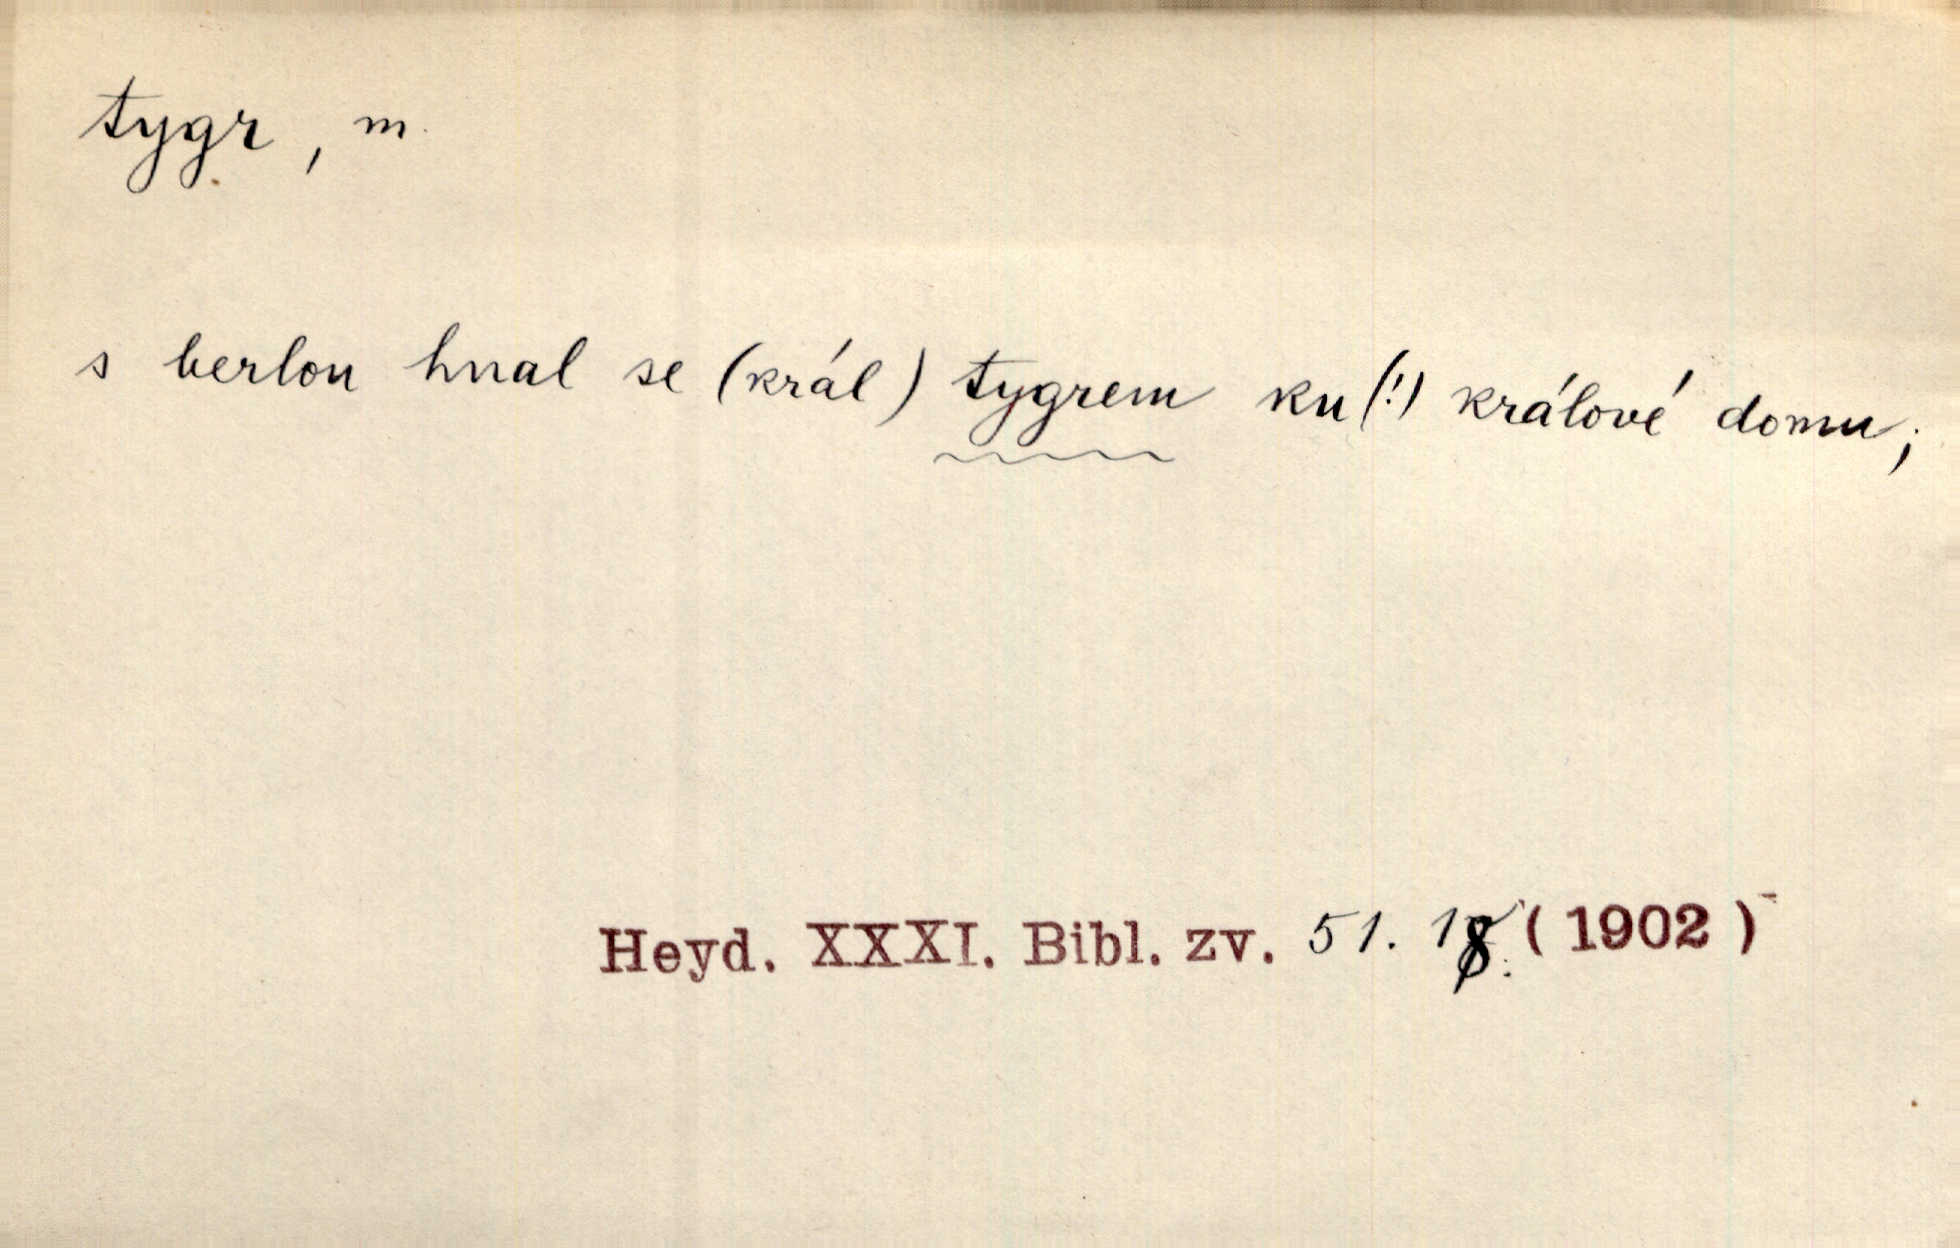 tygr, m.
s berlou hnal se (král) tygrem ku (!) králové domu;
Heyd. XXXI. Bibl. zv. 51. 18. (1902)